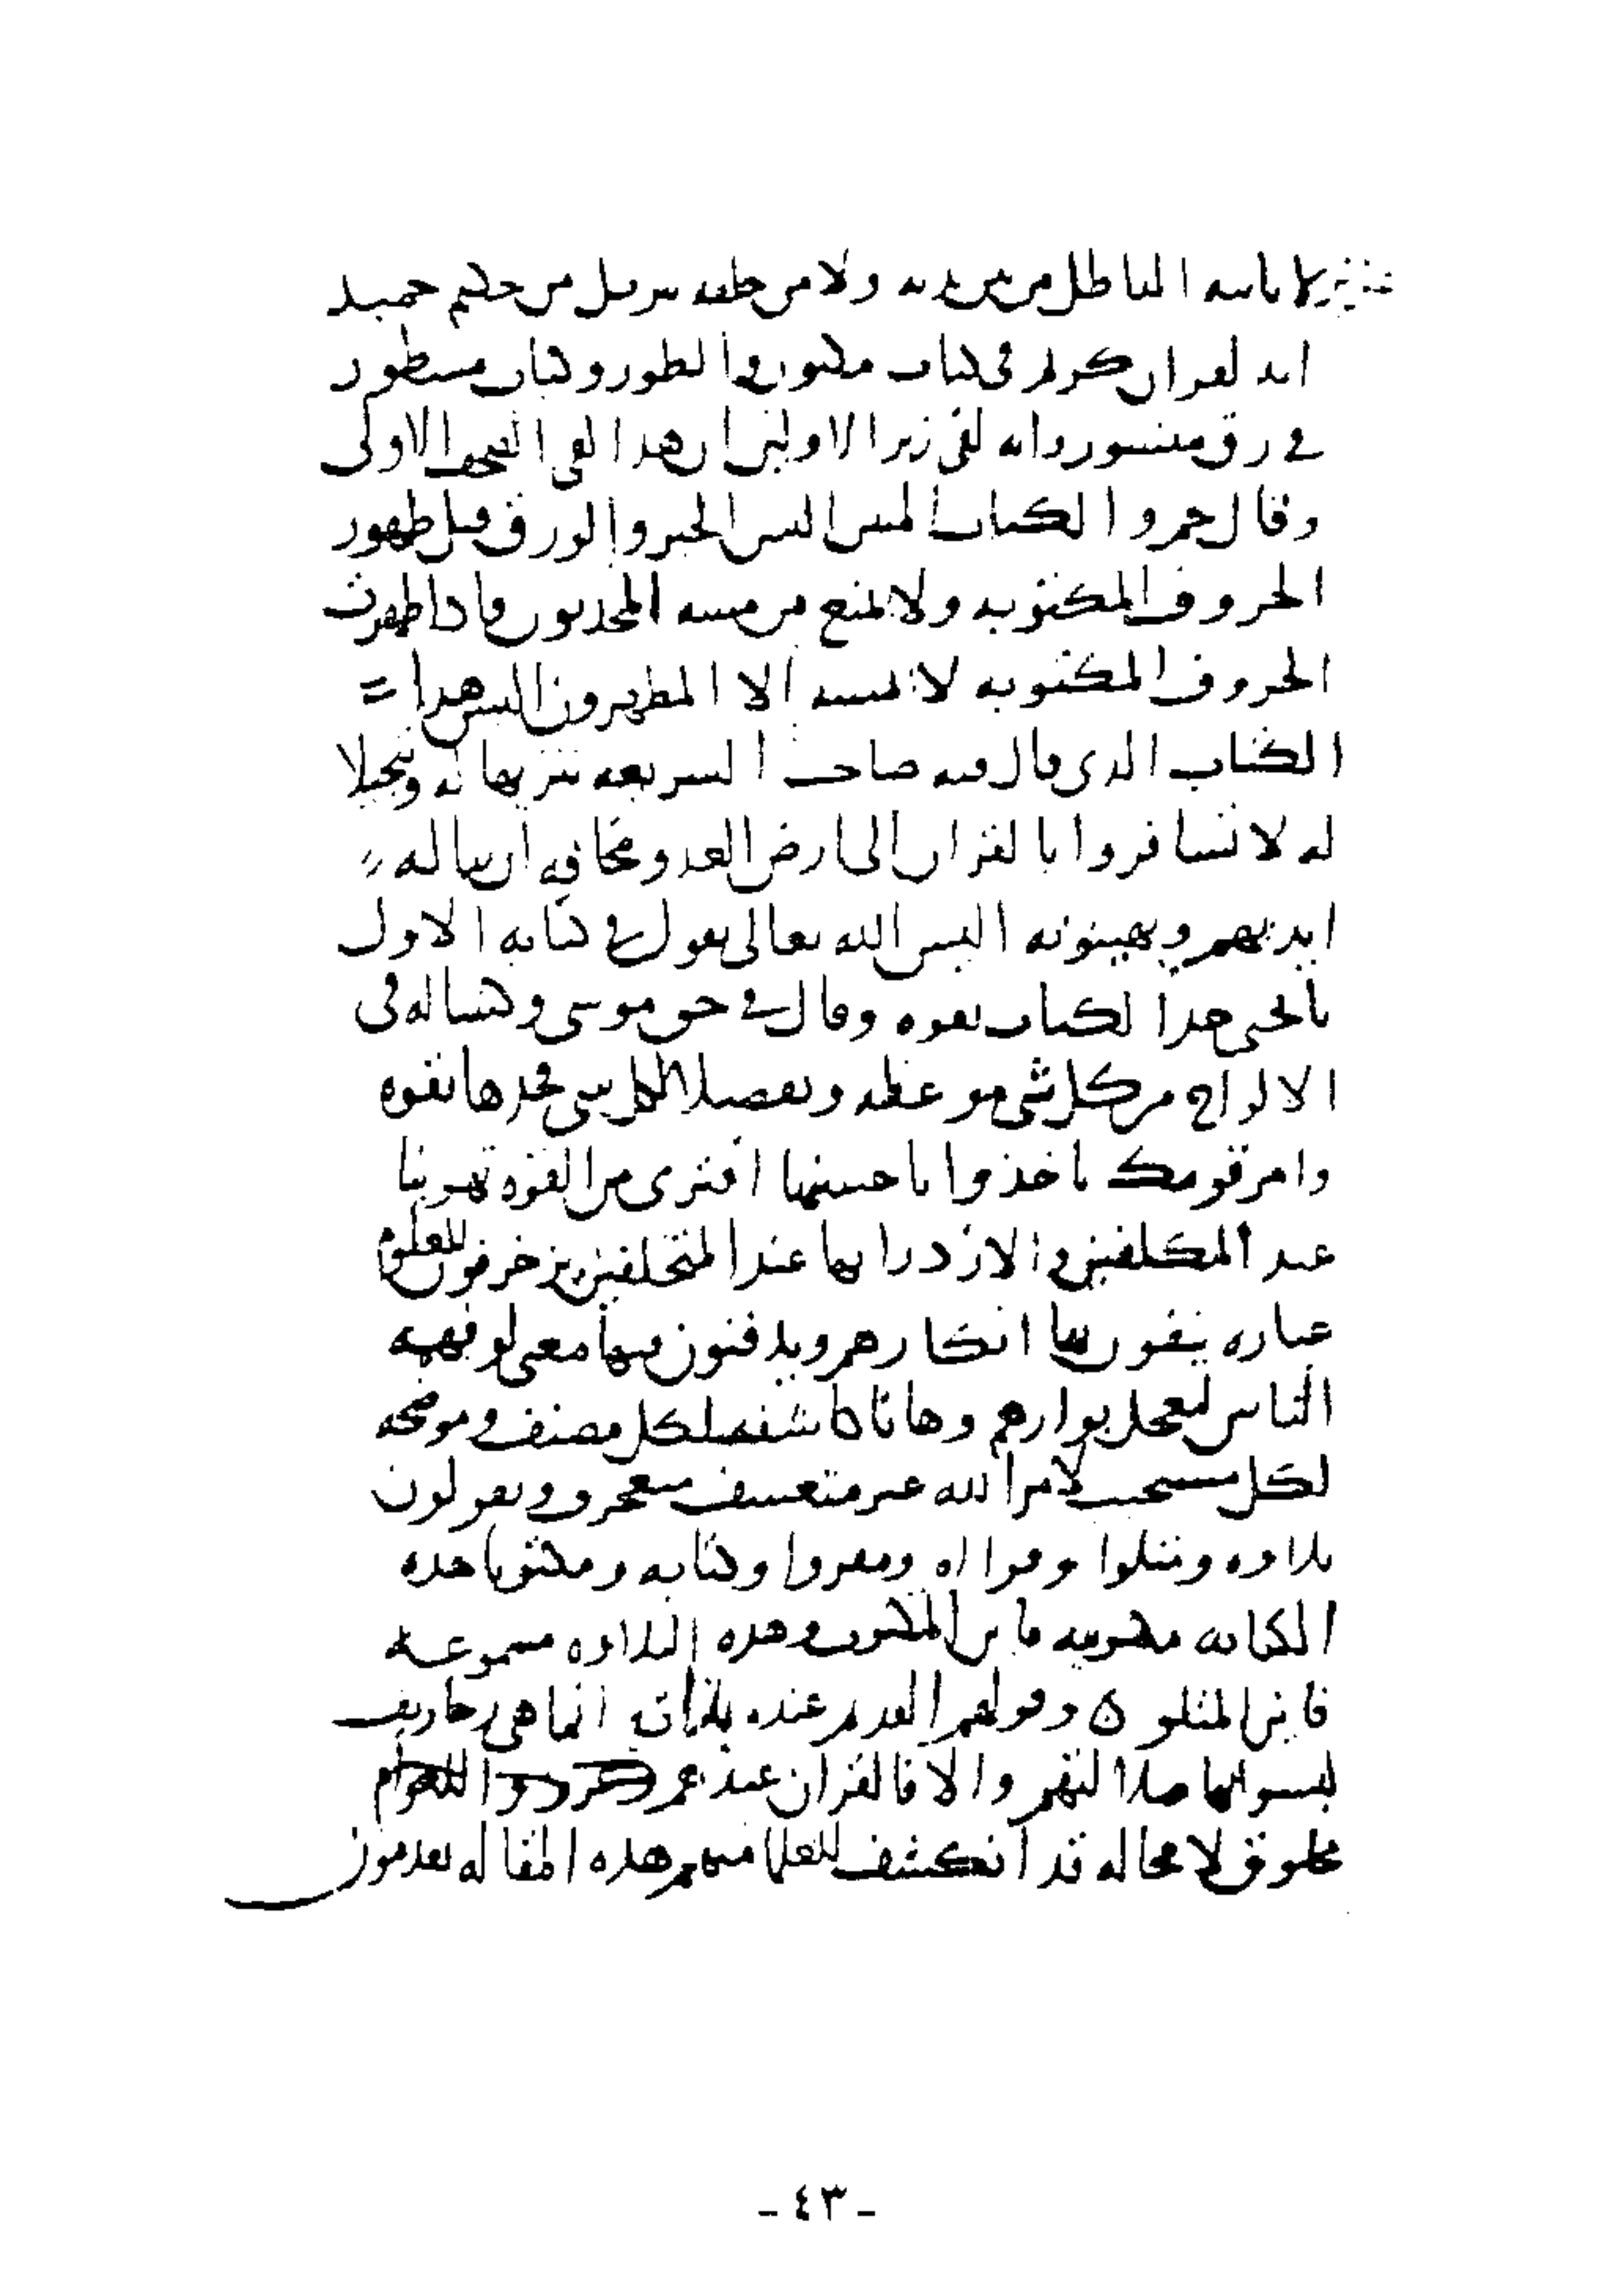 عزيز لا ياتيه الباطل من بين يديه ولا من خلفه تنزيل من حكيم حميد
انه لقران كريم في كتاب مكنون والطور وكتاب مسطور
في رق منشور وانه لفي زبر الاولين ان هذا لفي الصحف الاولى
وقال حم والكتاب المبين اليس الحبر والورق قبل ظهور
الحروف المكتوبه ولا يمنع من مسه المحدثون فاذا ظهرت
الحروف المكتوبه لا يمسه الا المطهرون اليس هذا =
الكتاب الذي قال فيه صاحب الشريعه تنزيها له وتبجيلا
له لا تسافروا بالقران الى ارض العدو مخافه ان يناله
ايديهم ويهينونه اليس الله تعالى يقول في كتابه الاول
يا يحيى خذ الكتاب بقوه وقال في حق موسى وكتبنا له في
الالواح من كل شي موعظه وتفصيلا لكل شي فخذها بقوه
وامر قومك ياخذوا باحسنها افترى من القوه تهوينا
عند المكلفين والازدرا بها عند المتخلفين يزخرفون للعلوم
عباره ينفون بها انكارهم ويدفنون فيها معنى لو فهمه
الناس لعجل بوارهم وها انا كاشفه لكل مصنف وموضحه
لكل مستجيب لامر الله غير متعسف متعجرف ويقولون
تلاوه ومتلوا وقراه ومقروا وكتابه ومكتوبا هذه
الكتابه مفهومه فاين المكتوب وهذه التلاوه مسموعه
فاين المتلو ن وقولهم القديم عنده بلذات انما هي زخاريف
لبسوا بها ضلالتهم والا فالقران عندهم
مخلوق لا محاله قد انكشف للعلما منهم هذه المقاله يقدمون
- ٤٣ -